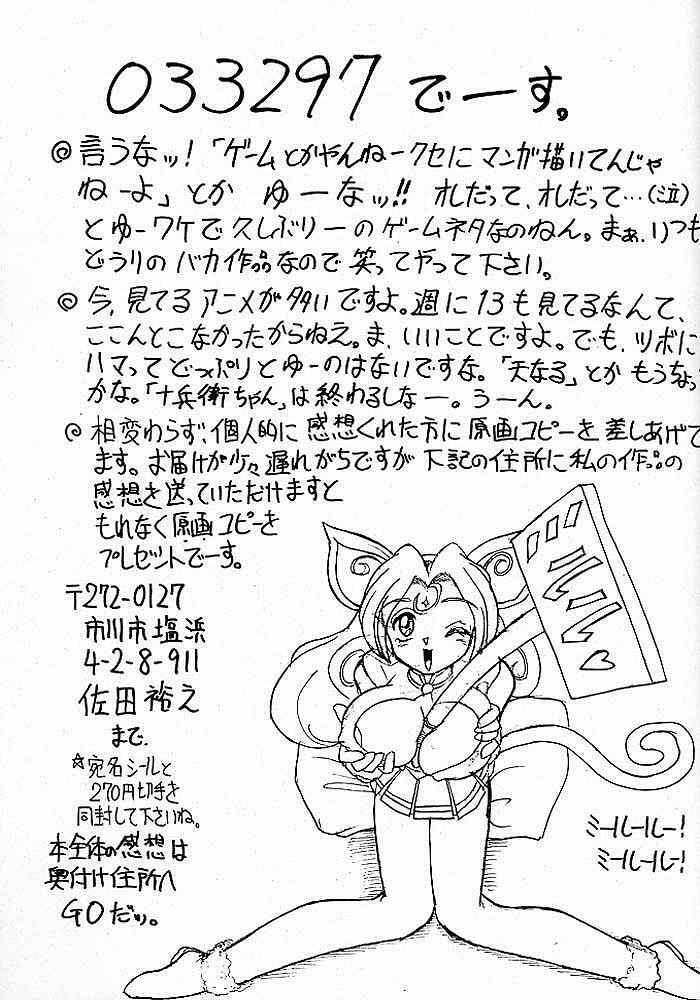 033297 でーす。
◎言うなッ！「ゲームとかやんねークセにマンガ描いてんじゃ
ねーよ」とか ゆーなッ!! オレだって、オレだって…(泣)
とゆーワケで久しぶりーのゲームネタなのねん。まぁ、いつも
どうりのバカ作品なので笑ってやって下さい。
◎今、見てるアニメが多いですよ。週に13も見てるなんて、
ここんとこなかったからねえ。ま、いいことですよ。でも、ツボに
ハマってどっぷりとゆーのはないですな。「天なる」とかもうちょ
かな。「十兵衛ちゃん」は終わるしなー。うーん。
◎相変わらず、個人的に感想くれた方に原画コピーを差しあげて
ます。お届けが少々遅れがちですが下記の住所に私の作品の
感想を送っていただけますと
もれなく原画コピーを
プレゼントでーす。
〒272-0127
市川市塩浜
4-2-8-911
佐田裕之
まで、
☆宛名シールと
270円切手を
同封して下さいね。
本全体の感想は
奥付け住所へ
GOだッ。
ルル♡
ミールールー！
ミールール！